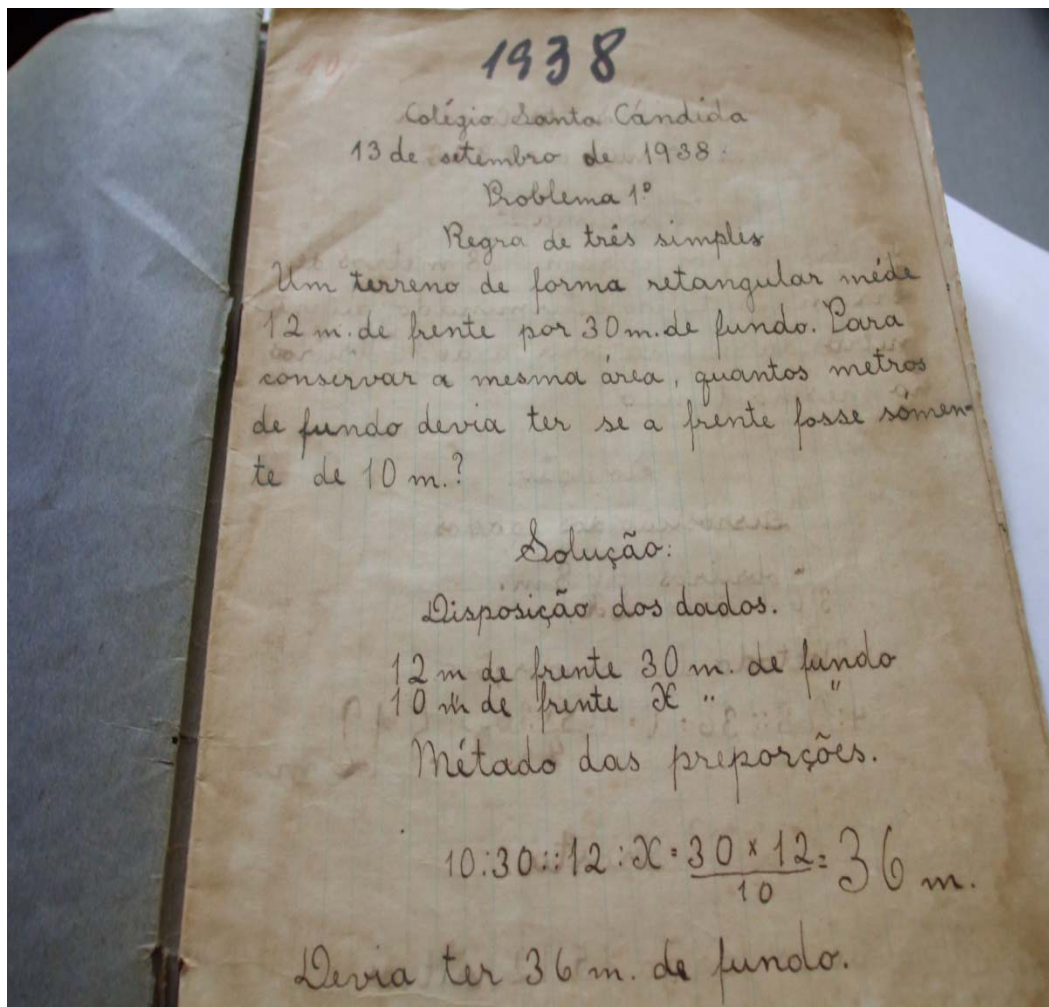 1938
Colégio Santa Cándida
13 de setembro de 1938.
Problema 1º
Regra de três simples
Um terreno de forma retangular méde
12 m. de frente por 30 m. de fundo. Para
conservar a mesma área, quantos metros
de fundo devia ter se a frente fosse sómen-
te de 10 m.?
Solução:
Disposição dos dados.
12 m de frente 30 m. de fundo
10 m de frente X " "
Métado das preporções.
10:30::12:X = 30 x 12 / 10 = 36 m.
Devia ter 36 m. de fundo.